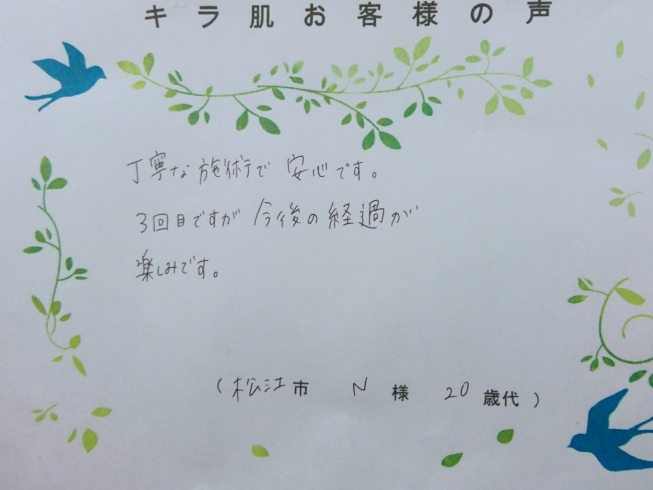 キラ肌お客様の声
丁寧な施術で安心です。
3回目ですが今後の経過が
楽しみです。
(松江市 N 様 20 歳代)